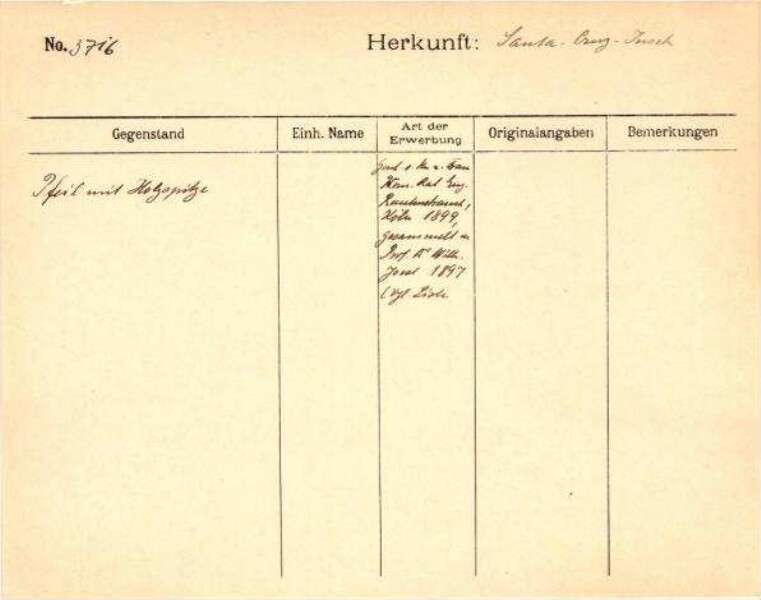 No. 3716 Herkunft: Santa-Cruz-Inseln
Gegenstand Einh. Name Art der Erwerbung Originalangaben Bemerkungen
Pfeil mit Holzspitze
Gesch. v. Hn. u. Frau
Kom. Rat Eug.
Rautenstrauch,
Köln 1899,
gesammelt v.
Prof. Dr Wilh.
Joest 1897
(Vgl. Liste